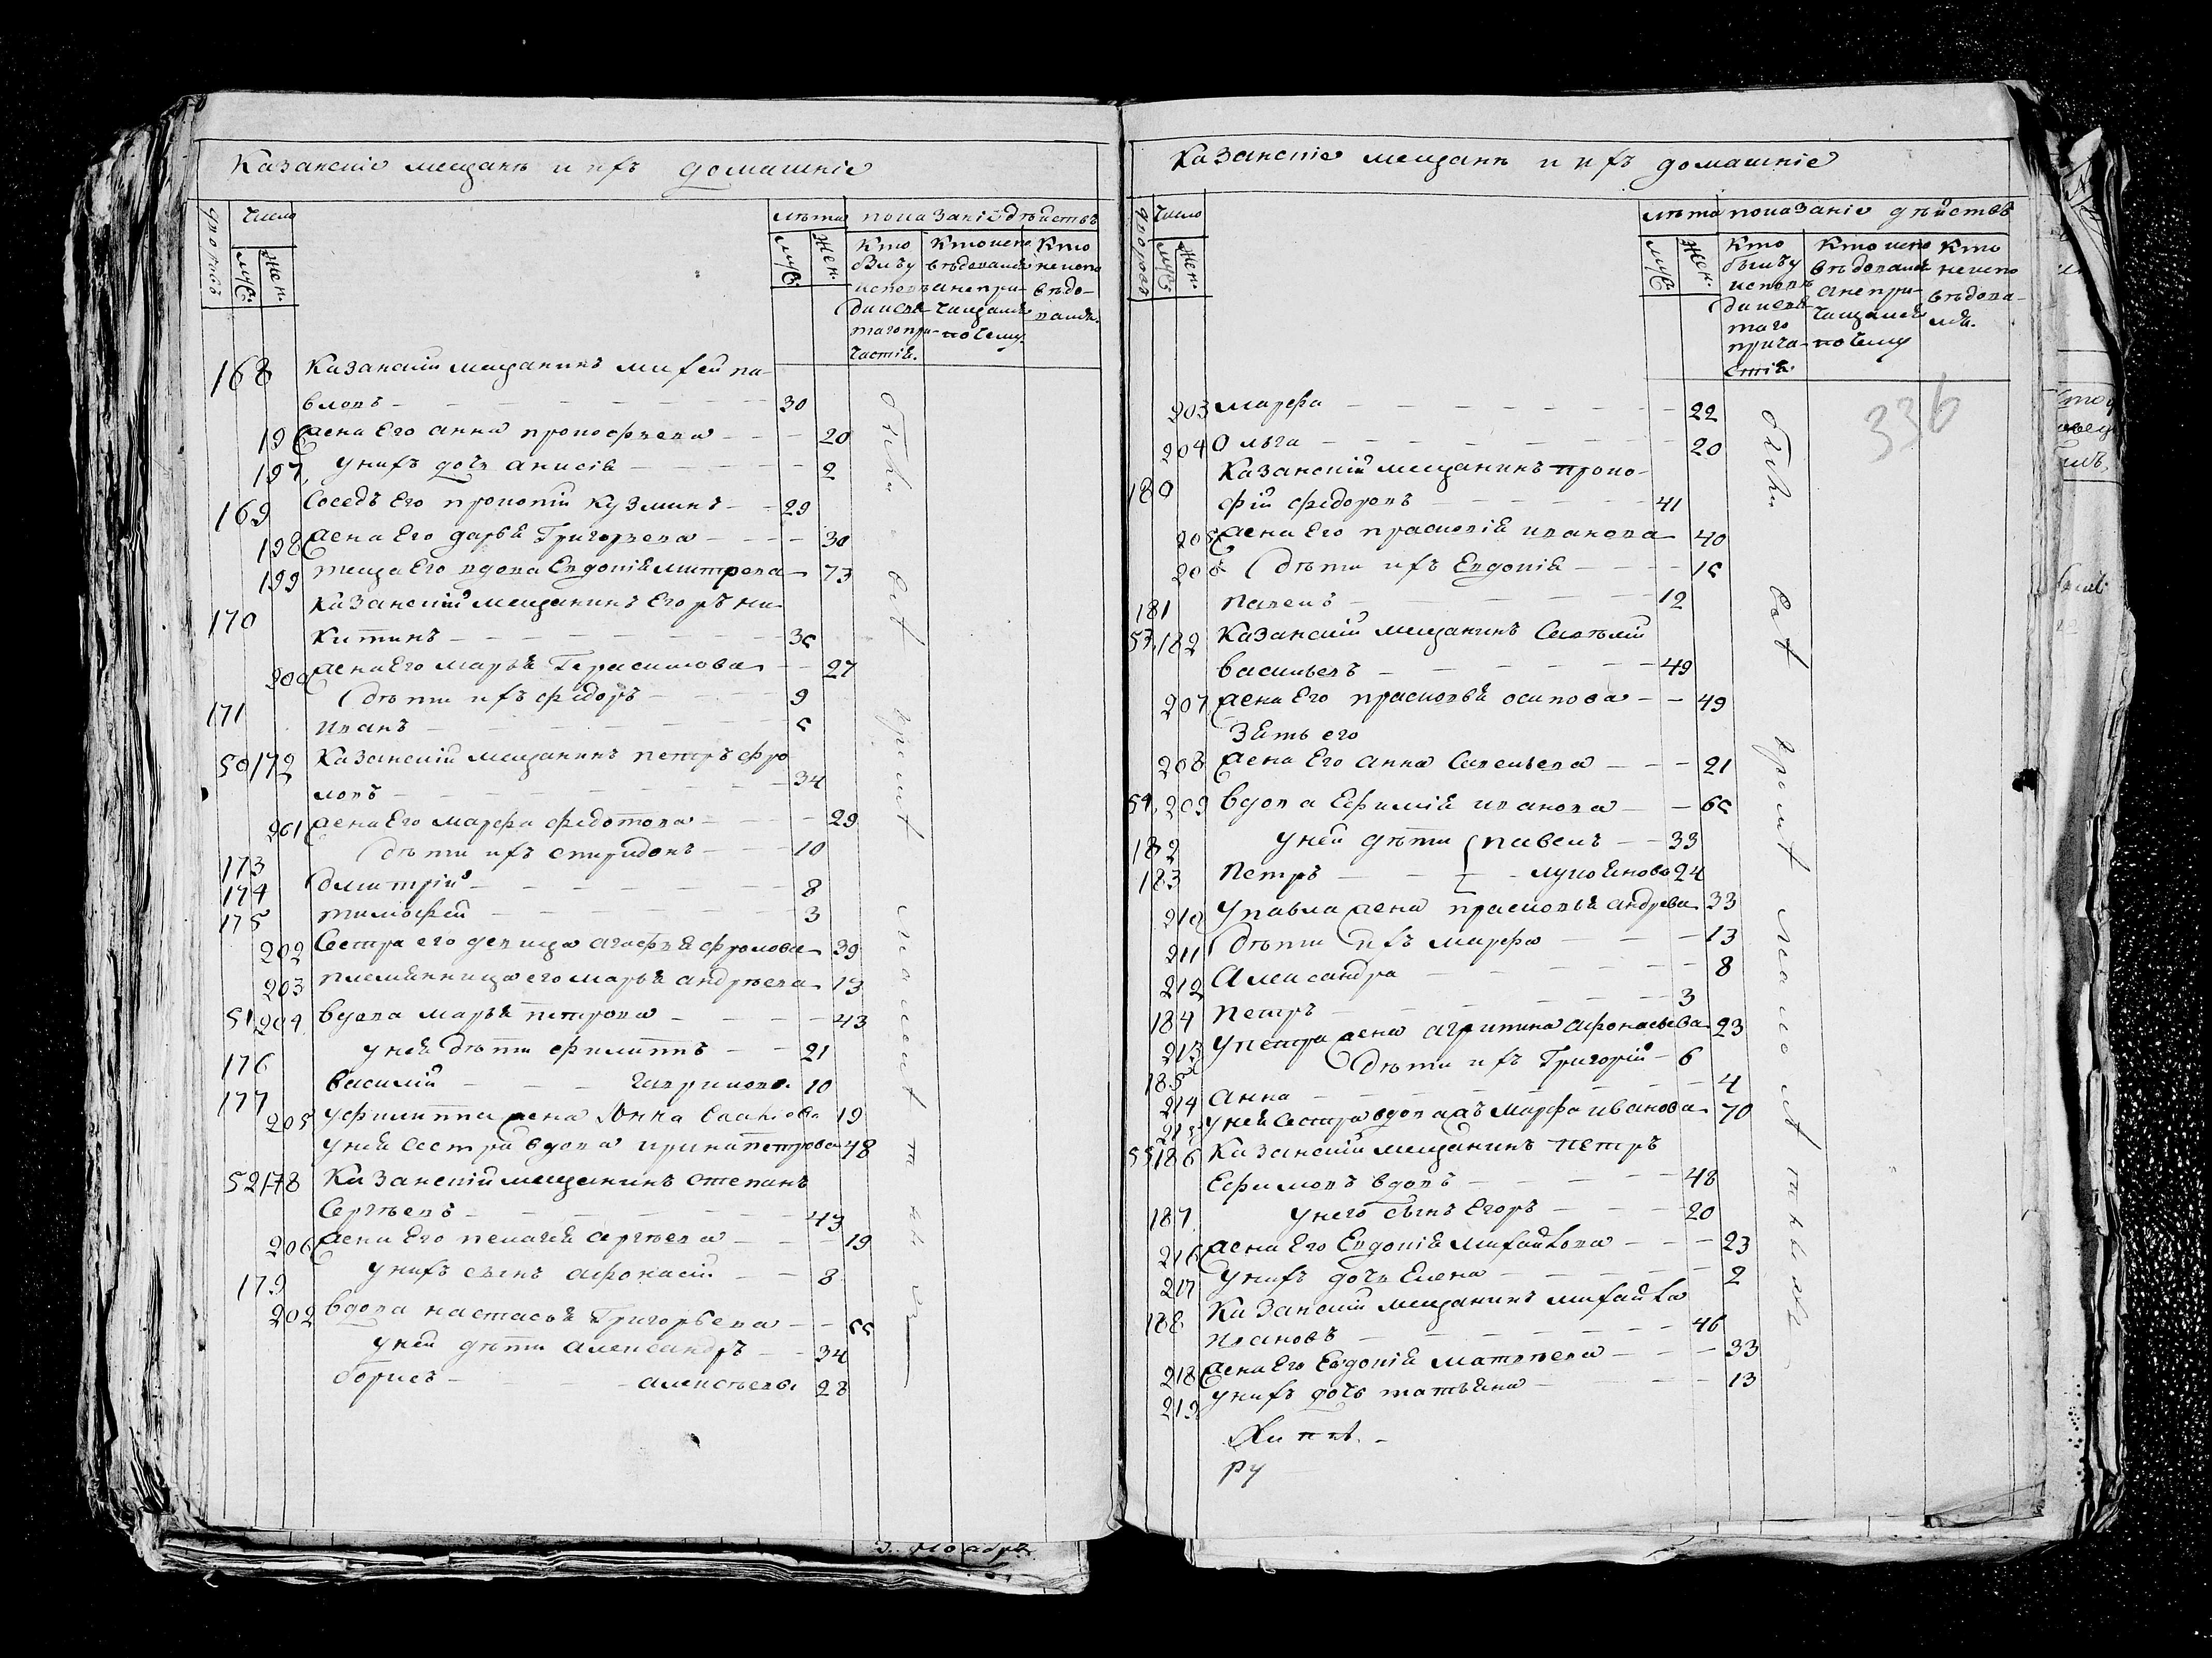 Казанские мещанъ и ихъ домашніе
Число
лѣта показаніе дѣйствъ
дворовъ
муж.
жен.
муж.
жен.
Кто былъ у исповѣди и святаго причастія.
Кто исповѣдался а не причащался по чему.
Кто не исповѣдался.
168 Казанскій мещанинъ михей па-
вловъ 30
196 жена Его анна прокофьева 20
197 у нихъ дочь анисія 2
169 Соседъ Его прокопій Кузминъ 29
198 жена Его дарья Григорьева 30
199 теща Его вдова Евдокія митрева 73
170 Казанскій мещанинъ Егоръ ни-
китинъ 35
200 жена Его марья Герасимова 27
дѣти ихъ федоръ 9
171 Иванъ 5
50 172 Казанскій мещанинъ петръ фро
ловъ 34
201 жена Его марфа федотова 29
173 дѣти ихъ спиридонъ 10
174 дмитрій 8
175 тимофей 3
202 Сестра его девица агафья фролова 39
203 племянница его марья андреева 13
51 204 вдова марья петрова 43
176 у ней дѣти филиппъ 21
177 василій гавриловы 10
205 у филиппа жена Анна 19
у ней сестра вдова ирина петрова 48
52 178 Казанскій мещанинъ степанъ
Сергѣевъ 43
206 жена Его пелагея сергѣева 19
179 у нихъ сынъ афонасій 8
202 вдова настасья Григорьева 55
у ней дѣти александръ 34
борисъ алексѣевы 28
Казанские мещанъ и ихъ домашніе
336
Число
лѣта показаніе дѣйствъ
дворовъ
муж.
жен.
муж.
жен.
Кто былъ у исповѣди и святаго причастія.
Кто исповѣдался а не причащался по чему
Кто не исповѣдался.
203 марфа 22
204 Ольга 20
Казанскій мещанинъ проко-
180 фій федоровъ 41
205 жена Его прасковія иванова 40
206 дѣти ихъ Евдокія 15
181 павелъ 12
53 182 Казанскій мещанинъ Савелій
васильевъ 49
207 жена Его прасковья осипова 49
Зять его
208 жена Его анна Савельева 21
54 209 вдова Ефимія иванова 65
182 у ней дѣти павелъ 33
183 петръ лукояновы 24
210 у павла жена прасковья андрева 33
211 дѣти ихъ марфа 13
212 Александра 8
184 петръ 3
213 у петра жена агрипина афонасьева 23
185 дѣти ихъ Григорій 6
214 Анна 4
215 у ней сестра вдова марфа иванова 70
55 186 Казанскій мещанинъ петръ
Ефимовъ вдовъ 48
187 у него сынъ Егоръ 20
216 жена Его Евдокія михайлова 23
217 у нихъ дочь Елена 2
188 Казанскій мещанинъ михайла
Ивановъ 46
218 жена Его Евдокія матвеева 33
219 у нихъ дочь татьяна 13
ру